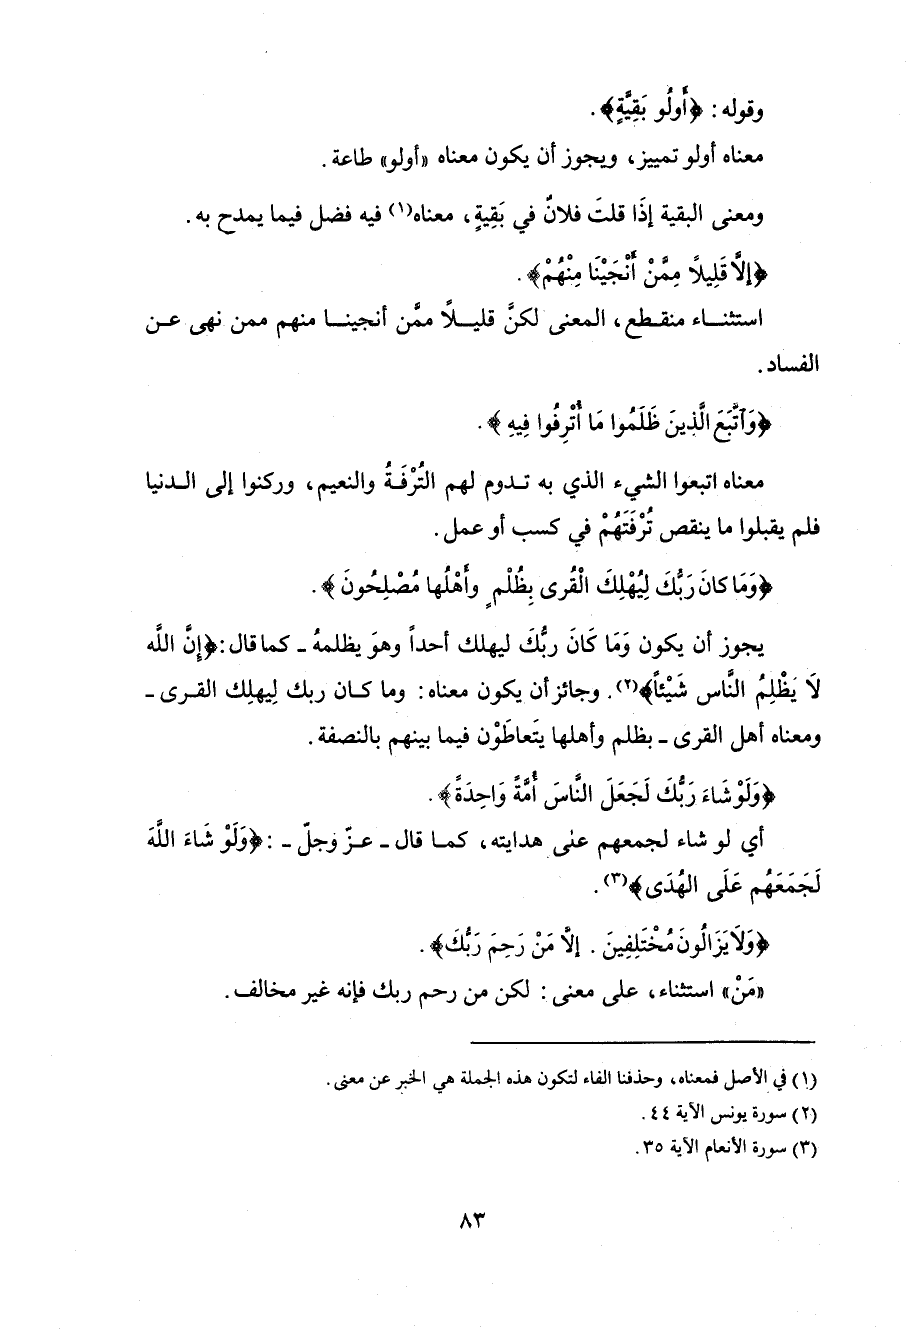 وقوله : ﴿أُولُو بَقِيَّةٍ﴾ .
معناه أولو تمييز، ويجوز أن يكون معناه «أولو» طاعة .
ومعنى البقية إذَا قلتَ فلانٌ في بَقِيةٍ، معناه(١) فيه فضل فيما يمدح به .
﴿إلاَّ قَلِيلاً مِمَّنْ أَنْجَيْنَا مِنْهُمْ﴾ .
استثنـاء منقـطع، المعنى لكنَّ قليـلاً ممَّن أنجينـا منهم ممن نهى عـن
الفساد .
﴿وَٱتَّبَعَ الَّذِينَ ظَلَمُوا مَا أُتْرِفُوا فِيهِ﴾ .
معناه اتبعوا الشيء الذي به تـدوم لهم التُرْفَـةُ والنعيم، وركنوا إلى الـدنيا
فلم يقبلوا ما ينقص تُرْفَتَهُمْ في كسب أو عمل .
﴿وَمَا كانَ رَبُّكَ لِيُهْلِكَ الْقُرى بِظُلْمٍ وأَهْلُها مُصْلِحُونَ﴾ .
يجوز أن يكون وَمَا كَانَ ربُّكَ ليهلك أحداً وهوَ يظلمهُ ـ كما قال : ﴿إِنَّ اللَّه
لاَ يَظْلِمُ النَّاس شَيْئاً﴾(٢) . وجائز أن يكون معناه : وما كـان ربك لِيهلِك القـرى ـ
ومعناه أهل القرى ـ بظلم وأهلها يتَعاطَوْن فيما بينهم بالنصفة .
﴿وَلَوْ شَاءَ رَبُّكَ لَجَعَلَ النَّاسَ أُمَّةً وَاحِدَةً﴾ .
أي لو شاء لجمعهم على هدايته، كمـا قال ـ عـزّ وجلّ ـ : ﴿وَلَوْ شَاءَ اللَّهَ
لَجَمَعَهُم عَلَى الهُدَى﴾(٣) .
﴿وَلاَ يَزَالُونَ مُخْتَلِفِينَ . إلاَّ مَنْ رَحِمَ رَبُّكَ﴾ .
«مَنْ» استثناء، على معنى : لكن من رحم ربك فإنه غير مخالف .
(١) في الأصل فمعناه، وحذفنا الفاء لتكون هذه الجملة هي الخبر عن معنى .
(٢) سورة يونس الآية ٤٤ .
(٣) سورة الأنعام الآية ٣٥ .
٨٣